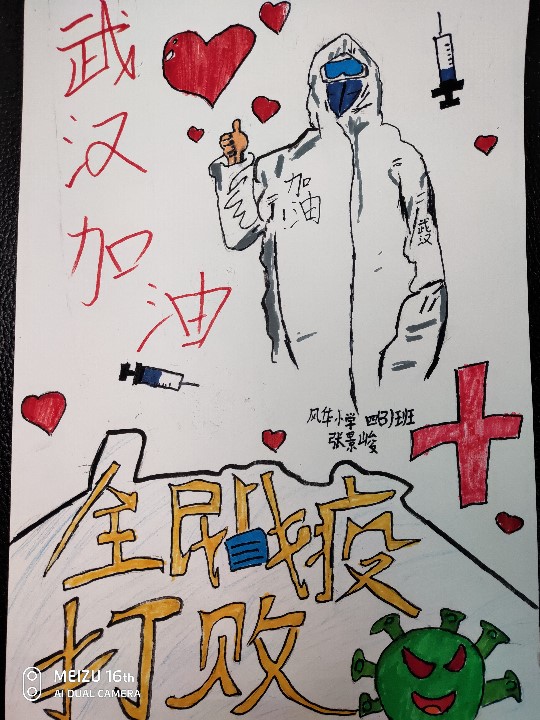 武汉加油
加油
武汉
风华小学 四(3)班
张景峻
全民战疫
打败
MEIZU 16th
AI DUAL CAMERA